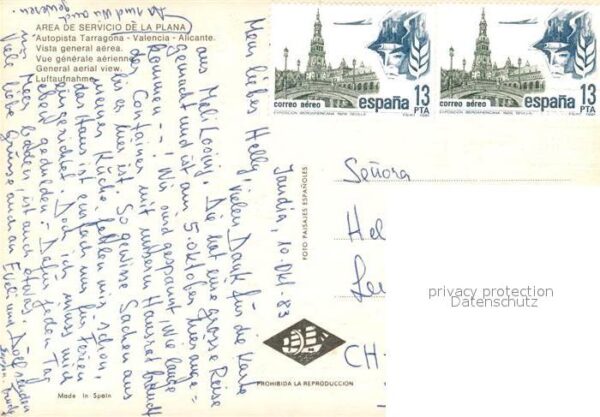 AREA DE SERVICIO DE LA PLANA
Autopista Tarragona - Valencia - Alicante.
Vista general aérea.
Vue générale aérienne.
General aerial view.
Luftaufnahme.
da sind wir auch
gewesen.
Jandia, 10. Okt. 83
Mein liebes Helly, vielen Dank für die Karte
aus Mali Losinj. Die hat eine grosse Reise
gemacht und ist am 5. Oktober hier ange=
kommen -- Wir sind gespannt, wie lange
der Container mit unserem Hausrat braucht
bis er hier ist. So gewisse Sachen aus
meiner Küche fehlen mir schon.
das Haus ist einfach nur für Ferien
eingerichtet. Doch ich muss mich
eben gedulden - Dafür jeden Tag
im Meer baden, ist auch etwas.
Viele liebe Grüsse, auch an
correo aéreo españa 13 PTA
EXPOSICION IBEROAMERICANA 1929. SEVILLA
correo aéreo españa 13 PTA
EXPOSICION IBEROAMERICANA 1929. SEVILLA
FOTO PAISAJES ESPAÑOLES
Señora
Hel
CH-
privacy protection
Datenschutz
PROHIBIDA LA REPRODUCCION
Made in Spain